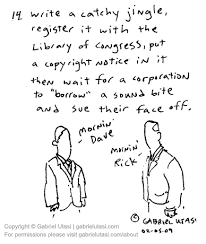 14. Write a catchy jingle,
register it with the
Library of Congress, put
a copyright notice in it
then wait for a corporation
to "borrow" a sound bite
and sue their face off.
Mornin'
Dave
Mornin'
Rick
© GABRIEL UTASI
02-05-09
Copyright © Gabriel Utasi | gabrielutasi.com
For permissions please visit gabrielutasi.com/about